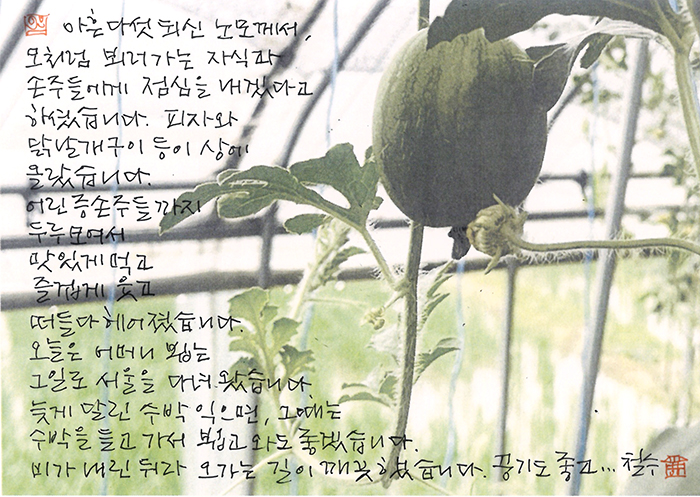 아흔 다섯 되신 노모께서,
모처럼 뵈러가는 자식과
손주들에게 점심을 내겠다고
하셨습니다. 피자와
닭날개구이 등이 상에
올랐습니다.
어린 증손주들까지
두루 모여서
맛있게 먹고
즐겁게 웃고
떠들다 헤어졌습니다.
오늘은 어머니 뵙는
그일로 서울을 다녀 왔습니다
늦게 달린 수박 익으면, 그때는
수박을 들고 가서 뵙고 와도 좋겠습니다.
비가 내린 뒤라 오가는 길이 깨끗했습니다. 공기도 좋고... 철수